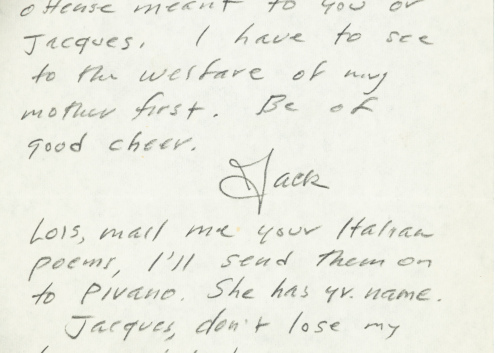 offense meant to you or
Jacques. I have to see
to the welfare of my
mother first. Be of
good cheer.
Jack
Lois, mail me your Italian
poems, I'll send them on
to Pivano. She has yr. name.
Jacques, don't lose my